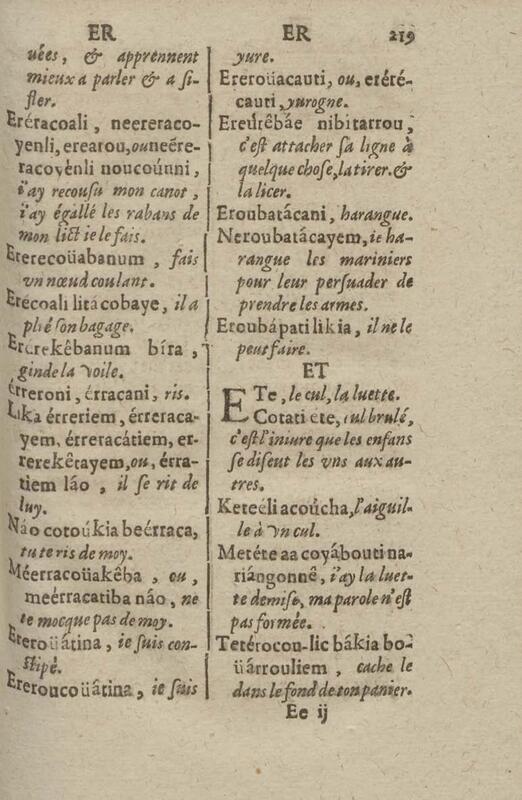 ER ER 219
uées, & apprennent
mieux a parler & a si-
fler.
Eréracoali, neereraco-
yenli, erearou, ou neére-
racoyénli noucoúnni,
i'ay recousu mon canot,
i'ay égallé les rabans de
mon lict ie le fais.
Ererecoüabanum, fais
vn nœud coulant.
Erécoali litácobaye, il a
plié son bagage.
Ererekêbanum bíra,
ginde la voile.
érreroni, érracani, ris.
Lika érreriem, érreraca-
yem, érreracátiem, er-
rerekêtayem, ou, érra-
tiem láo, il se rit de
luy.
Náo cotoúkia beérraca,
tu te ris de moy.
Méerracoüakêba, ou,
meérracatiba náo, ne
te mocque pas de moy.
Ereroüátina, ie suis con-
stipé.
Ereroncoüâtina, ie suis
yure.
Ereroüacauti, ou, eréré-
cauti, yurogne.
Ereurêbáe nibitarrou,
c'est attacher sa ligne à
quelque chose, la tirer. &
la licer.
Eroubatácani, harangue.
Neroubatácayem, ie ha-
rangue les mariniers
pour leur persuader de
prendre les armes.
Eroubápati likia, il ne le
peut faire.
ET
ETe, le cul, la luette.
Cotati ete, cul brulé,
c'est l'iniure que les enfans
se disent les vns aux au-
tres.
Keteéli acoúcha, l'aiguil-
le à vn cul.
Metéte aa coyábouti na-
riángonnê, i'ay la luet-
te demise, ma parole n'est
pas formée.
Tetérocon-lic bákia bo-
üárrouliem, cache le
dans le fond de ton panier.
Ee ij